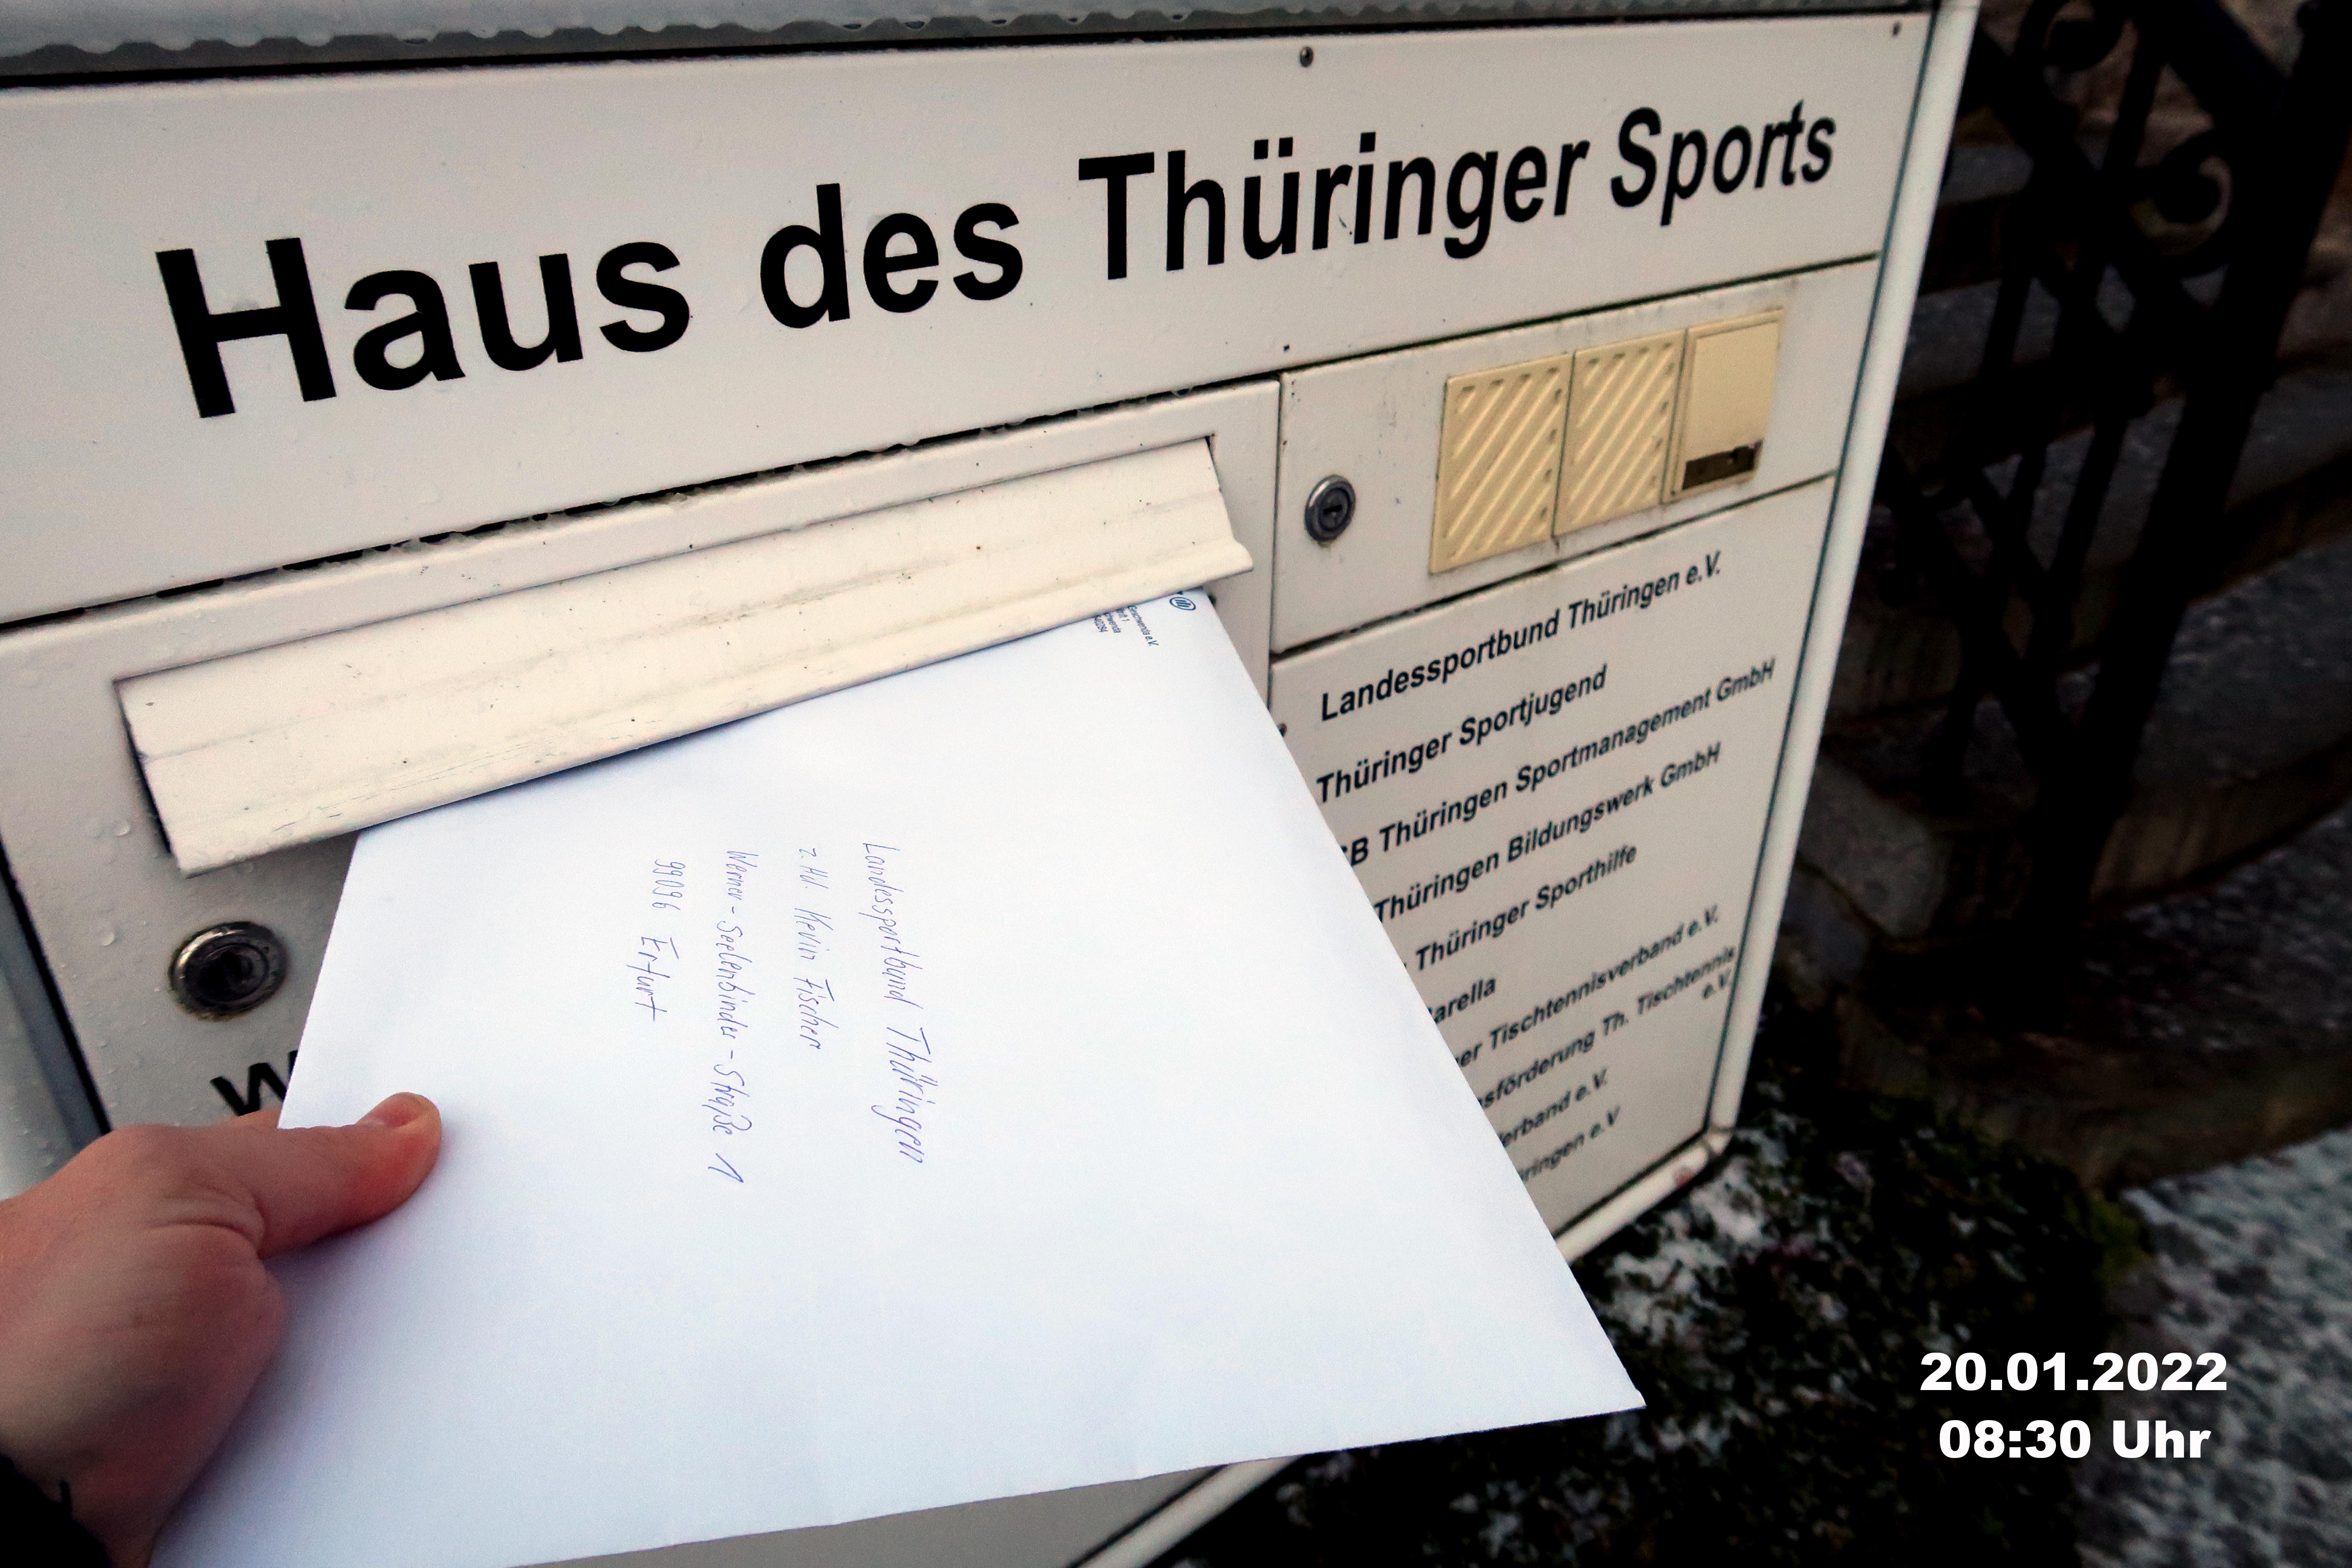 Haus des Thüringer Sports
Landessportbund Thüringen e.V.
Thüringer Sportjugend
SB Thüringen Sportmanagement GmbH
Thüringen Bildungswerk GmbH
Thüringer Sporthilfe
arella
er Tischtennisverband e.V.
sförderung Th. Tischtennis
e.V.
erband e.V.
ringen e.V
Landessportbund Thüringen
z.Hd. Kevin Fischer
Werner-Seelenbinder-Straße 1
99096 Erfurt
W
20.01.2022
08:30 Uhr